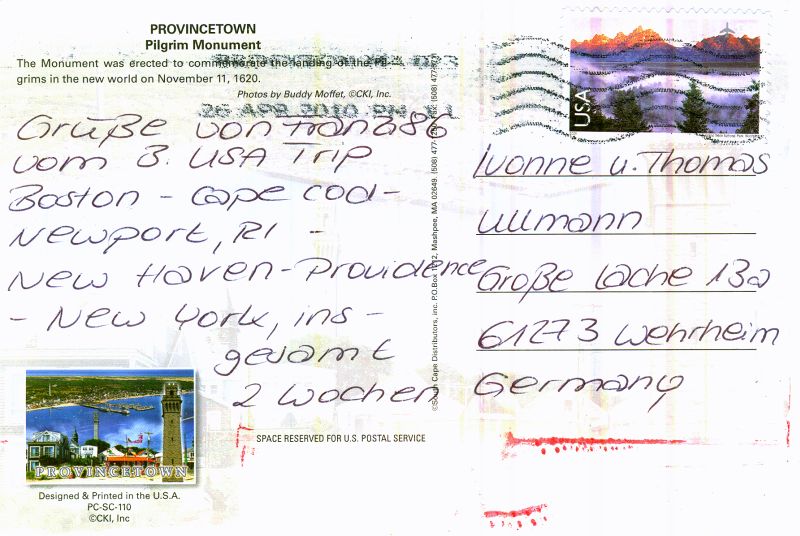 PROVINCETOWN
Pilgrim Monument
The Monument was erected to commemorate the landing of the Pil-
grims in the new world on November 11, 1620.
Photos by Buddy Moffet, ©CKI, Inc.
26 APR 2010 PM
USA
Grüße von
vom 3. USA Trip
Boston - Cape Cod -
Newport, RI -
New Haven - Providence
- New York, ins -
gesamt
2 Wochen
Ivonne u. Thomas
Ullmann
Große Lache 13a
61273 Wehrheim
Germany
©South Cape Distributors, inc. P.O.Box Mashpee, MA 02649. (508) 477-
PROVINCETOWN
SPACE RESERVED FOR U.S. POSTAL SERVICE
Designed & Printed in the U.S.A.
PC-SC-110
©CKI, Inc